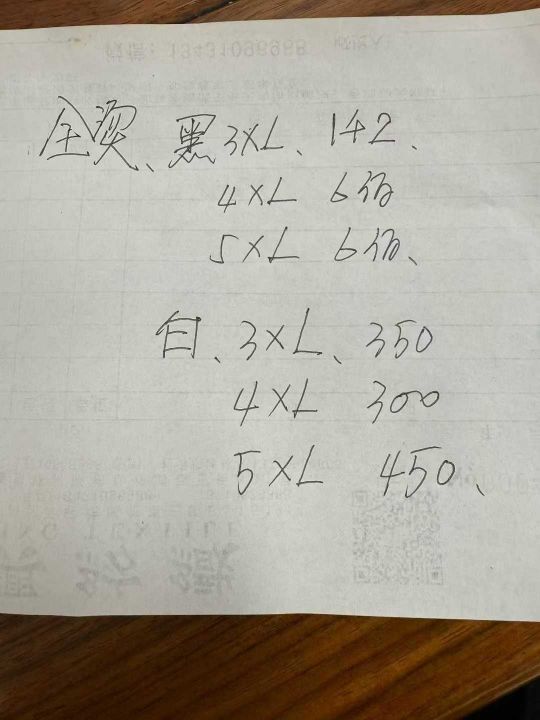 黑3XL、142、
4XL 6佰
5XL 6佰、
白、3XL、350
4XL 300
5XL 450、